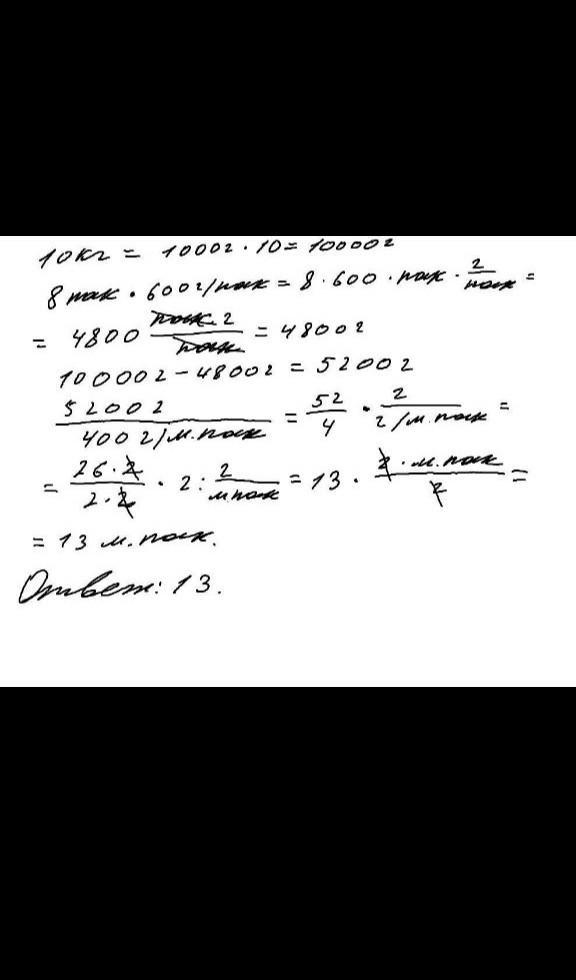 10кг = 1000г · 10 = 10000г
8 пак · 600г/пак = 8 · 600 · пак · г/пак =
= 4800 пак·г/пак = 4800г
10000г − 4800г = 5200г
5200г / 400г/м.пак = 52/4 · г / г/м.пак =
= 26·2 / 2·2 · г : г/м пак = 13 · г · м.пак / г =
= 13 м.пак.
Ответ: 13.